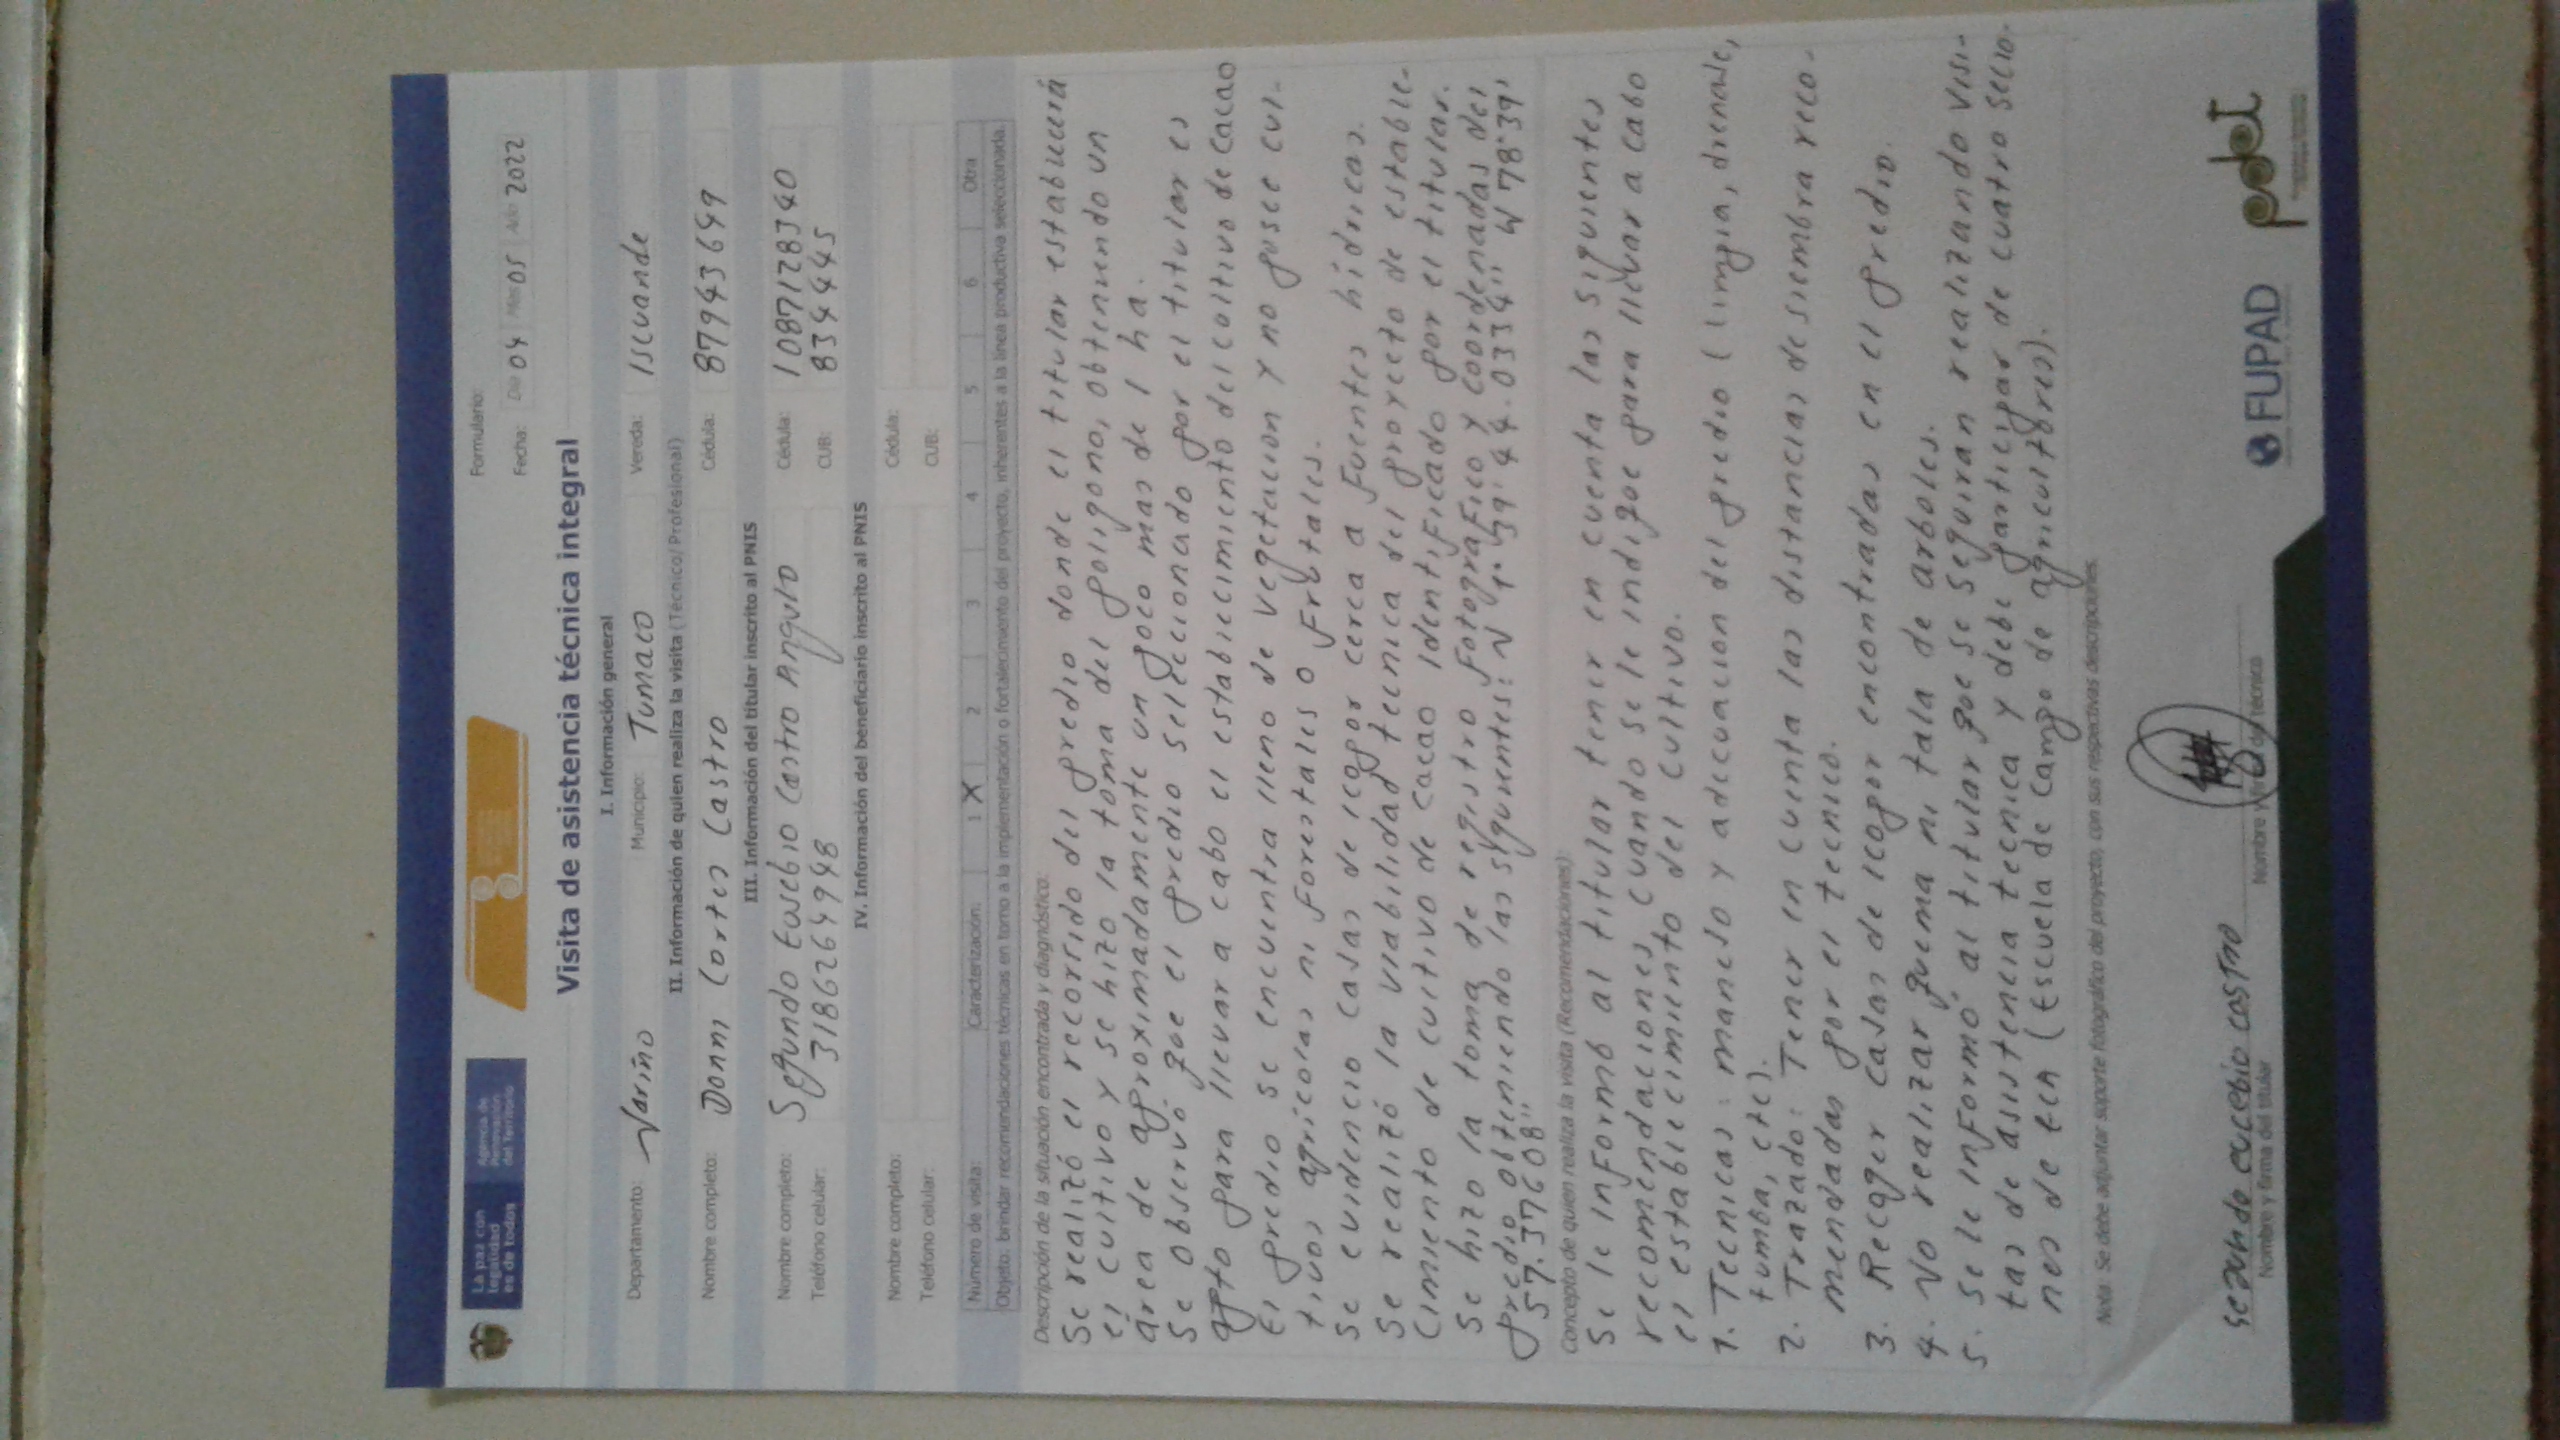 La paz con
legalidad
es de todos
Agencia de
Renovación
del Territorio
Formulario:
Fecha: Día 04 Mes 05 Año 2022
Visita de asistencia técnica integral
I. Información general
Departamento: Nariño Municipio: Tumaco Vereda: Iscuande
II. Información de quien realiza la visita (Técnico/Profesional)
Nombre completo: Donni Cortes Castro Cédula: 87943649
III. Información del titular inscrito al PNIS
Nombre completo: Segundo Eusebio Castro Angulo Cédula: 1087128340
Teléfono celular: 3186264948 CUB: 834445
IV. Información del beneficiario inscrito al PNIS
Nombre completo: Cédula:
Teléfono celular: CUB:
Número de visita: Caracterización: 1 X 2 3 4 5 6 Otra
Objeto: brindar recomendaciones técnicas en torno a la implementación o fortalecimiento del proyecto, inherentes a la línea productiva seleccionada.
Descripción de la situación encontrada y diagnóstico:
Se realizó el recorrido del predio donde el titular establecerá
el cultivo y se hizo la toma del poligono, obteniendo un
área de aproximadamente un poco mas de 1 ha.
Se observó que el predio seleccionado por el titular es
apto para llevar a cabo el establecimiento del cultivo de cacao
El predio se encuentra lleno de vegetacion y no posee cul-
tivos agrícolas ni forestales o frutales.
Se evidencio casas de icopor cerca a fuentes hídricas.
Se realizó la viabilidad tecnica del proyecto de estable-
cimiento de cultivo de cacao identificado por el titular.
Se hizo la toma de registro fotografico y coordenadas del
predio obteniendo las siguientes: N 1° 39' 44.0334" W 78° 39'
57.37608"
Concepto de quien realiza la visita (Recomendaciones):
Se le informó al titular tener en cuenta las siguientes
recomendaciones, cuando se le indique para llevar a cabo
el establecimiento del cultivo.
1. Tecnicas: manejo y adecuacion del predio (limpia, drenaje,
tumba, etc).
2. Trazado: Tener en cuenta las distancias de siembra reco-
mendadas por el tecnico.
3. Recoger casas de icopor encontradas en el predio.
4. No realizar quema ni tala de arboles.
5. Se le informó al titular que se seguiran realizando visi-
tas de asistencia tecnica y debe participar de cuatro secio-
nes de ECA (Escuela de campo de agricultores).
Nota: Se debe adjuntar soporte fotográfico del proyecto, con sus respectivas descripciones.
segundo eucebio castro
Nombre y firma del titular
Nombre y firma del técnico
FUPAD
pdet